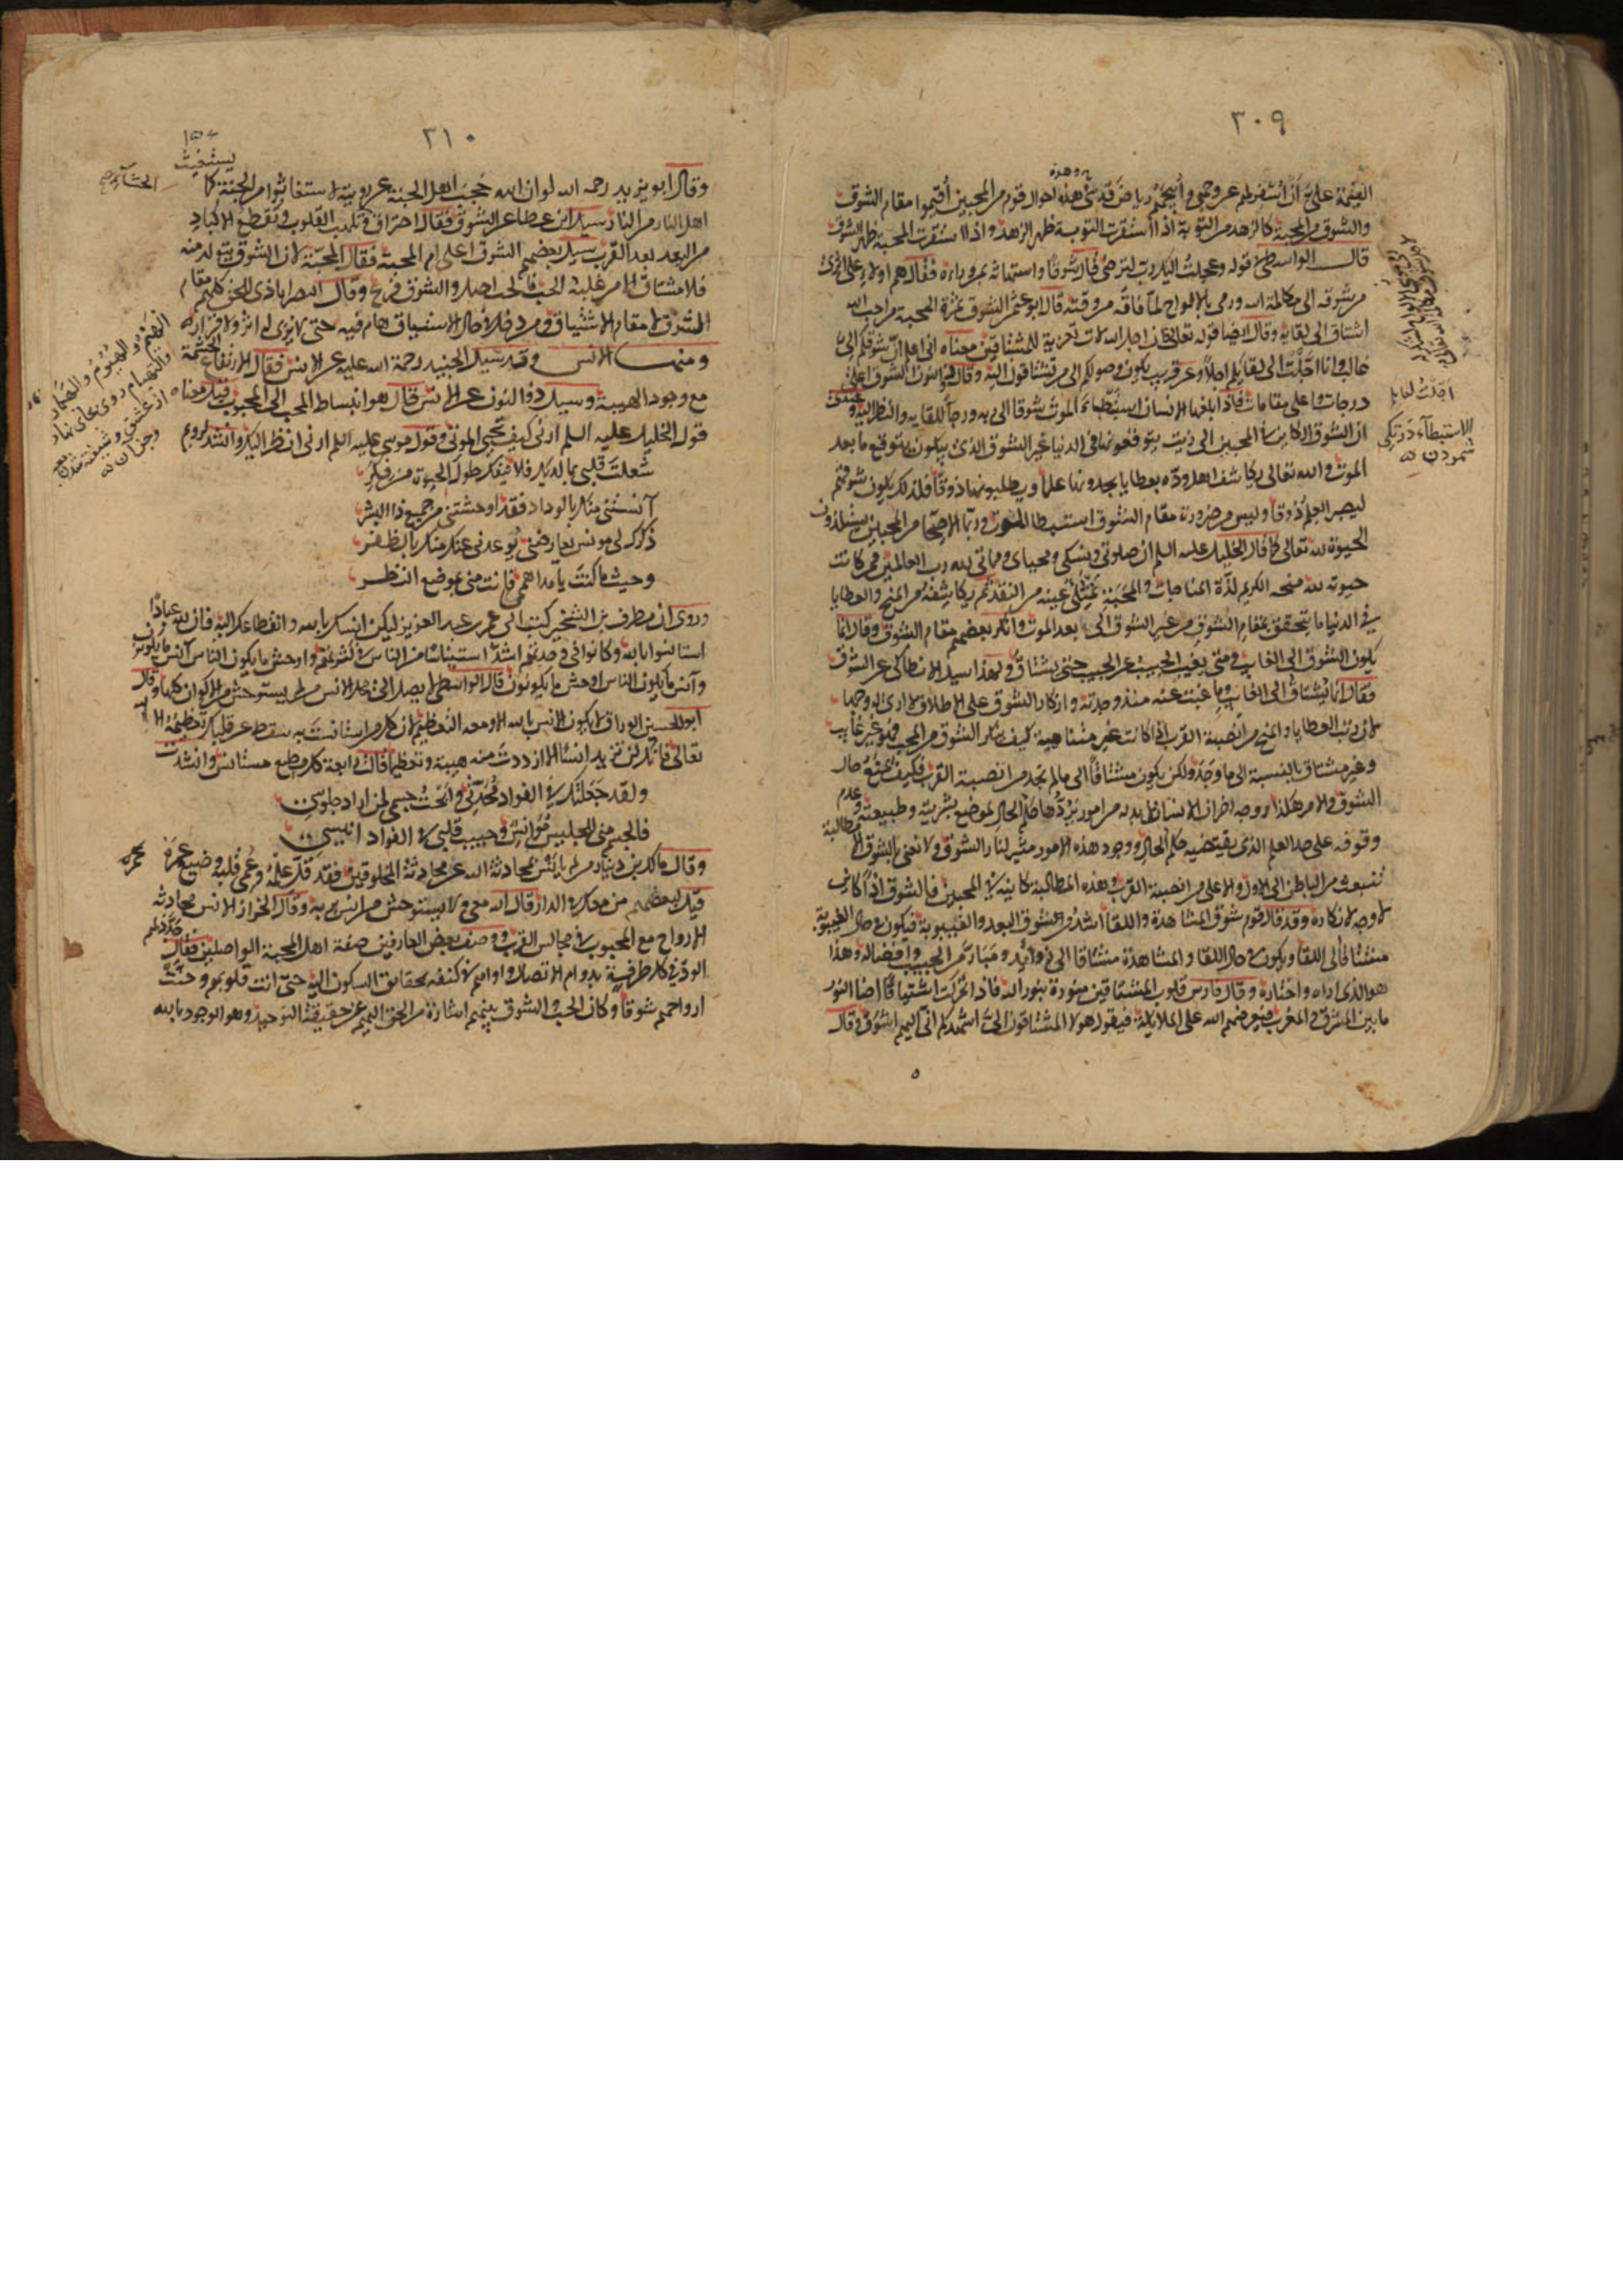 ٣٠٩
القيمة على أن أسفر لهم عن وجهي وأبيحهم رياض قدسي وهذه احوال قوم من المحبين أقيموا مقام الشوق
والشوق من المحبة كالزهد من التوبة اذا استقرت التوبة ظهر الزهد واذا استقرت المحبة ظهر الشوق
قال الواسطي في قوله وعجلت اليك رب لترضى قال شوقا واستهانة بمن وراءه فقال هم اولاء على اثرى
من شوقه الى مكالمة الله ورمى بالالواح لما فاته من وقته قال ابو عثمن الشوق ثمرة المحبة من احب الله
اشتاق الى لقايه وقال ايضا في قوله تعالى فان اجل الله لات تعزية للمشتاقين معناه انى اعلم ان شوقكم الىّ
غالب وانا اجّلت الى لقايكم اجلا وعن قريب يكون وصولكم الى من تشتاقون اليه وقال ذو النون الشوق اعلى
درجات واعلى مقامات فاذا بلغها الانسان استبطاء الموت شوقا الى ربه ورجاً للقايه والنظر اليه وعندى
ان الشوق الكاين فى المحبين الى رتب يتوقعونها فى الدنيا غير الشوق الذى يتوقعون به ما بعد
الموت والله تعالى يكاشف اهل وده بعطايا يجدونها علما ويطلبونها ذوقا فكذلك يكون شوقهم
ليصير العلم ذوقا وليس من ضرورة مقام الشوق استبطا الموت وربما الاصحا من المحبين يستلذون
الحيوة لله تعالى كما قال الخليل عليه السلم ان صلوتى ونسكى ومحياى ومماتى لله رب العالمين فمن كانت
حيوته لله منحه الكريم لذة المناجات والمحبة فتمتلئ عينه من النقد ثم يكاشفه من المنح والعطايا
فى الدنيا ما يتحقق بمقام الشوق من غير الشوق الى ما بعد الموت وانكر بعضهم مقام الشوق وقال انما
يكون الشوق الى الغايب ومتى يغيب الحبيب عن الحبيب حتى يشتاق ولهذا سيل الانطاكى عن الشوق
فقال انما يشتاق الى الغايب وما غبت عنه منذ وجدته وانكار الشوق على الاطلاق لا ارى له وجها
لان رتب العطايا والمنح من انصبة القرب اذا كانت غير متناهية كيف ينكر الشوق من المحب فهو غير غايب
وغير مشتاق بالنسبة الى ما وجد ولكن يكون مشتاقا الى ما لم يجد من انصبة القرب فكيف يمنع حال
الشوق والامر هكذا ووجه اخر ان الانسان لا بد له من امور يردّها حكم الحال لموضع بشريته وطبيعته وعدم
وقوفه على حد العلم الذى يقتضيه حكم الحال ووجود هذه الامور مثير لنار الشوق ولا نعنى بالشوق الا مطالبة
تنبعث من الباطن الى الاولى والاعلى من انصبة القرب وهذه المطالبة كاينة فى المحبين فالشوق اذا كاين
لا وجه لانكاره وقد قال قوم شوق المشاهدة واللقا اشد من شوق البعد والغيبوبة فيكون فى حال الغيبوبة
مشتاقا الى اللقا ويكون فى حال اللقا والمشاهدة مشتاقا الى زوايد ومبار من الحبيب وافضاله وهذا
هو الذى اراه واختاره وقال فارس قلوب المشتاقين منورة بنور الله فاذا تحركت اشتياقا اضا النور
ما بين المشرق والمغرب فيعرضهم الله على الملايكة فيقول هولا المشتاقون الىّ اشهدكم انى اليهم اشوق وقال
الاستبطآء
٣١٠
وقال ابو يزيد رحمه الله لو ان الله حجب اهل الجنة عن رويته لاستغاثوا من الجنة كما يستغيث
اهل النار من النار سيل ابن عطا عن الشوق فقال احتراق وتلهب القلوب وتقطع الاكباد
من البعد بعد القرب سيل بعضهم الشوق اعلى ام المحبة فقال المحبة لان الشوق يتولد منه
فلا مشتاق الا من غلبه الحب فالحب اصل والشوق فرع وقال النصراباذى للخلق كلهم مقام
الشوق لا مقام الاشتياق ومن دخل فى حال الاشتياق هام فيه حتى لا يرى له اثر ولا قرار
ومنها الانس وقد سيل الجنيد رحمة الله عليه عن الانس فقال الارتفاع الحشمة
مع وجود الهيبة وسيل ذوالنون عن الانس قال هو انبساط المحب الى المحبوب قيل معناه
قول الخليل عليه السلم ارنى كيف تحيى الموتى وقول موسى عليه السلم ارنى انظر اليك وانشد لرويم
شغلت قلبى بما لديك فلا ينفك طول الحيوة من فكر
آنستنى منك بالوداد فقد اوحشتنى من جميع ذا البشر
ذكرك لى مونس يعارضنى يوعدنى عنك منك بالظفر
وحيث ما كنت يا مدا هممى فانت منى بموضع النظر
وروى ان مطرف بن الشخير كتب الى عمر بن عبد العزيز ليكن انسك بالله وانقطاعك اليه فان لله عبادا
استانسوا بالله وكانوا فى وحدتهم اشد استيناسا من الناس فى كثرتهم واوحش ما يكون الناس آنس ما يكونون
وآنس ما يكون الناس اوحش ما يكونون قال الواسطى لا يصل الى محل الانس من لم يستوحش من الاكوان كلها وقال
ابو الحسين الوراق لا يكون الانس بالله الا ومعه التعظيم لان كل من استانست به سقط عن قلبك تعظيمه الا الله
تعالى فانك لن تزيد به انسا الا ازددت منه هيبة وتعظيما قالت رابعة كل مطيع مستانس وانشدت
ولقد جعلتك فى الفواد محدثى وابحت جسمى لمن اراد جلوسى
فالجسم منى للجليس مؤانس وحبيب قلبى فى الفواد انيسى
وقال مالك بن دينار من لم يانس بمحادثة الله عن محادثة المخلوقين فقد قلّ علمه وعمى قلبه وضيع عمره
قيل لبعضهم من معك فى الدار قال الله معى ولا يستوحش من انس بربه وقال الخراز الانس محادثة
الارواح مع المحبوب فى مجالس القرب ووصف بعض العارفين صفة اهل المحبة الواصلين فقال جدد لهم
الود فى كل طرفة بدوام الاتصال واواهم فى كنفه بحقايق السكون اليه حتى انت قلوبهم وحنت
ارواحهم شوقا وكان الحب والشوق منهم اشارة من الحق اليهم عن حقيقة التوحيد وهو الوجود بالله